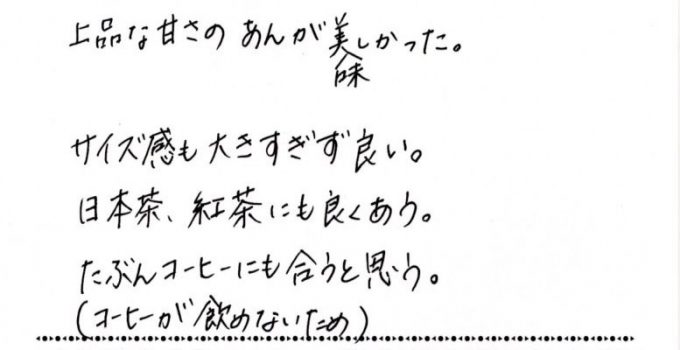 上品な甘さのあんが美味しかった。
サイズ感も大きすぎず良い。
日本茶、紅茶にも良くあう。
たぶんコーヒーにも合うと思う。
(コーヒーが飲めないため)